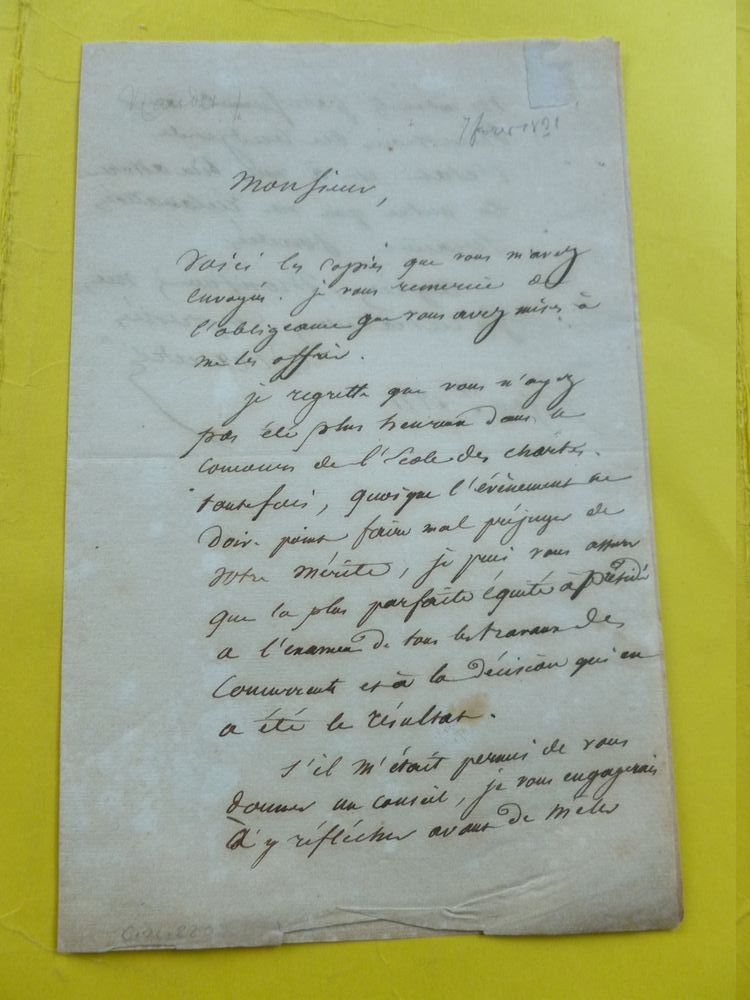 7 février 1831
Monsieur,
Voici les copies que vous m'avez
envoyés. je vous remercie de
l'obligeance que vous avez mise à
me les offrir.
je regrette que vous n'ayez
pas été plus heureux dans le
concours de l'École des chartes.
toutefois, quoique l'évènement ne
doive point faire mal préjuger de
votre mérite, je puis vous assurer
que la plus parfaite équité a présidé
a l'examen de tous les travaux des
concurrents et à la décision qui en
a été le résultat.
S'il m'était permis de vous
donner un conseil, je vous engagerais
à y réfléchir avant de